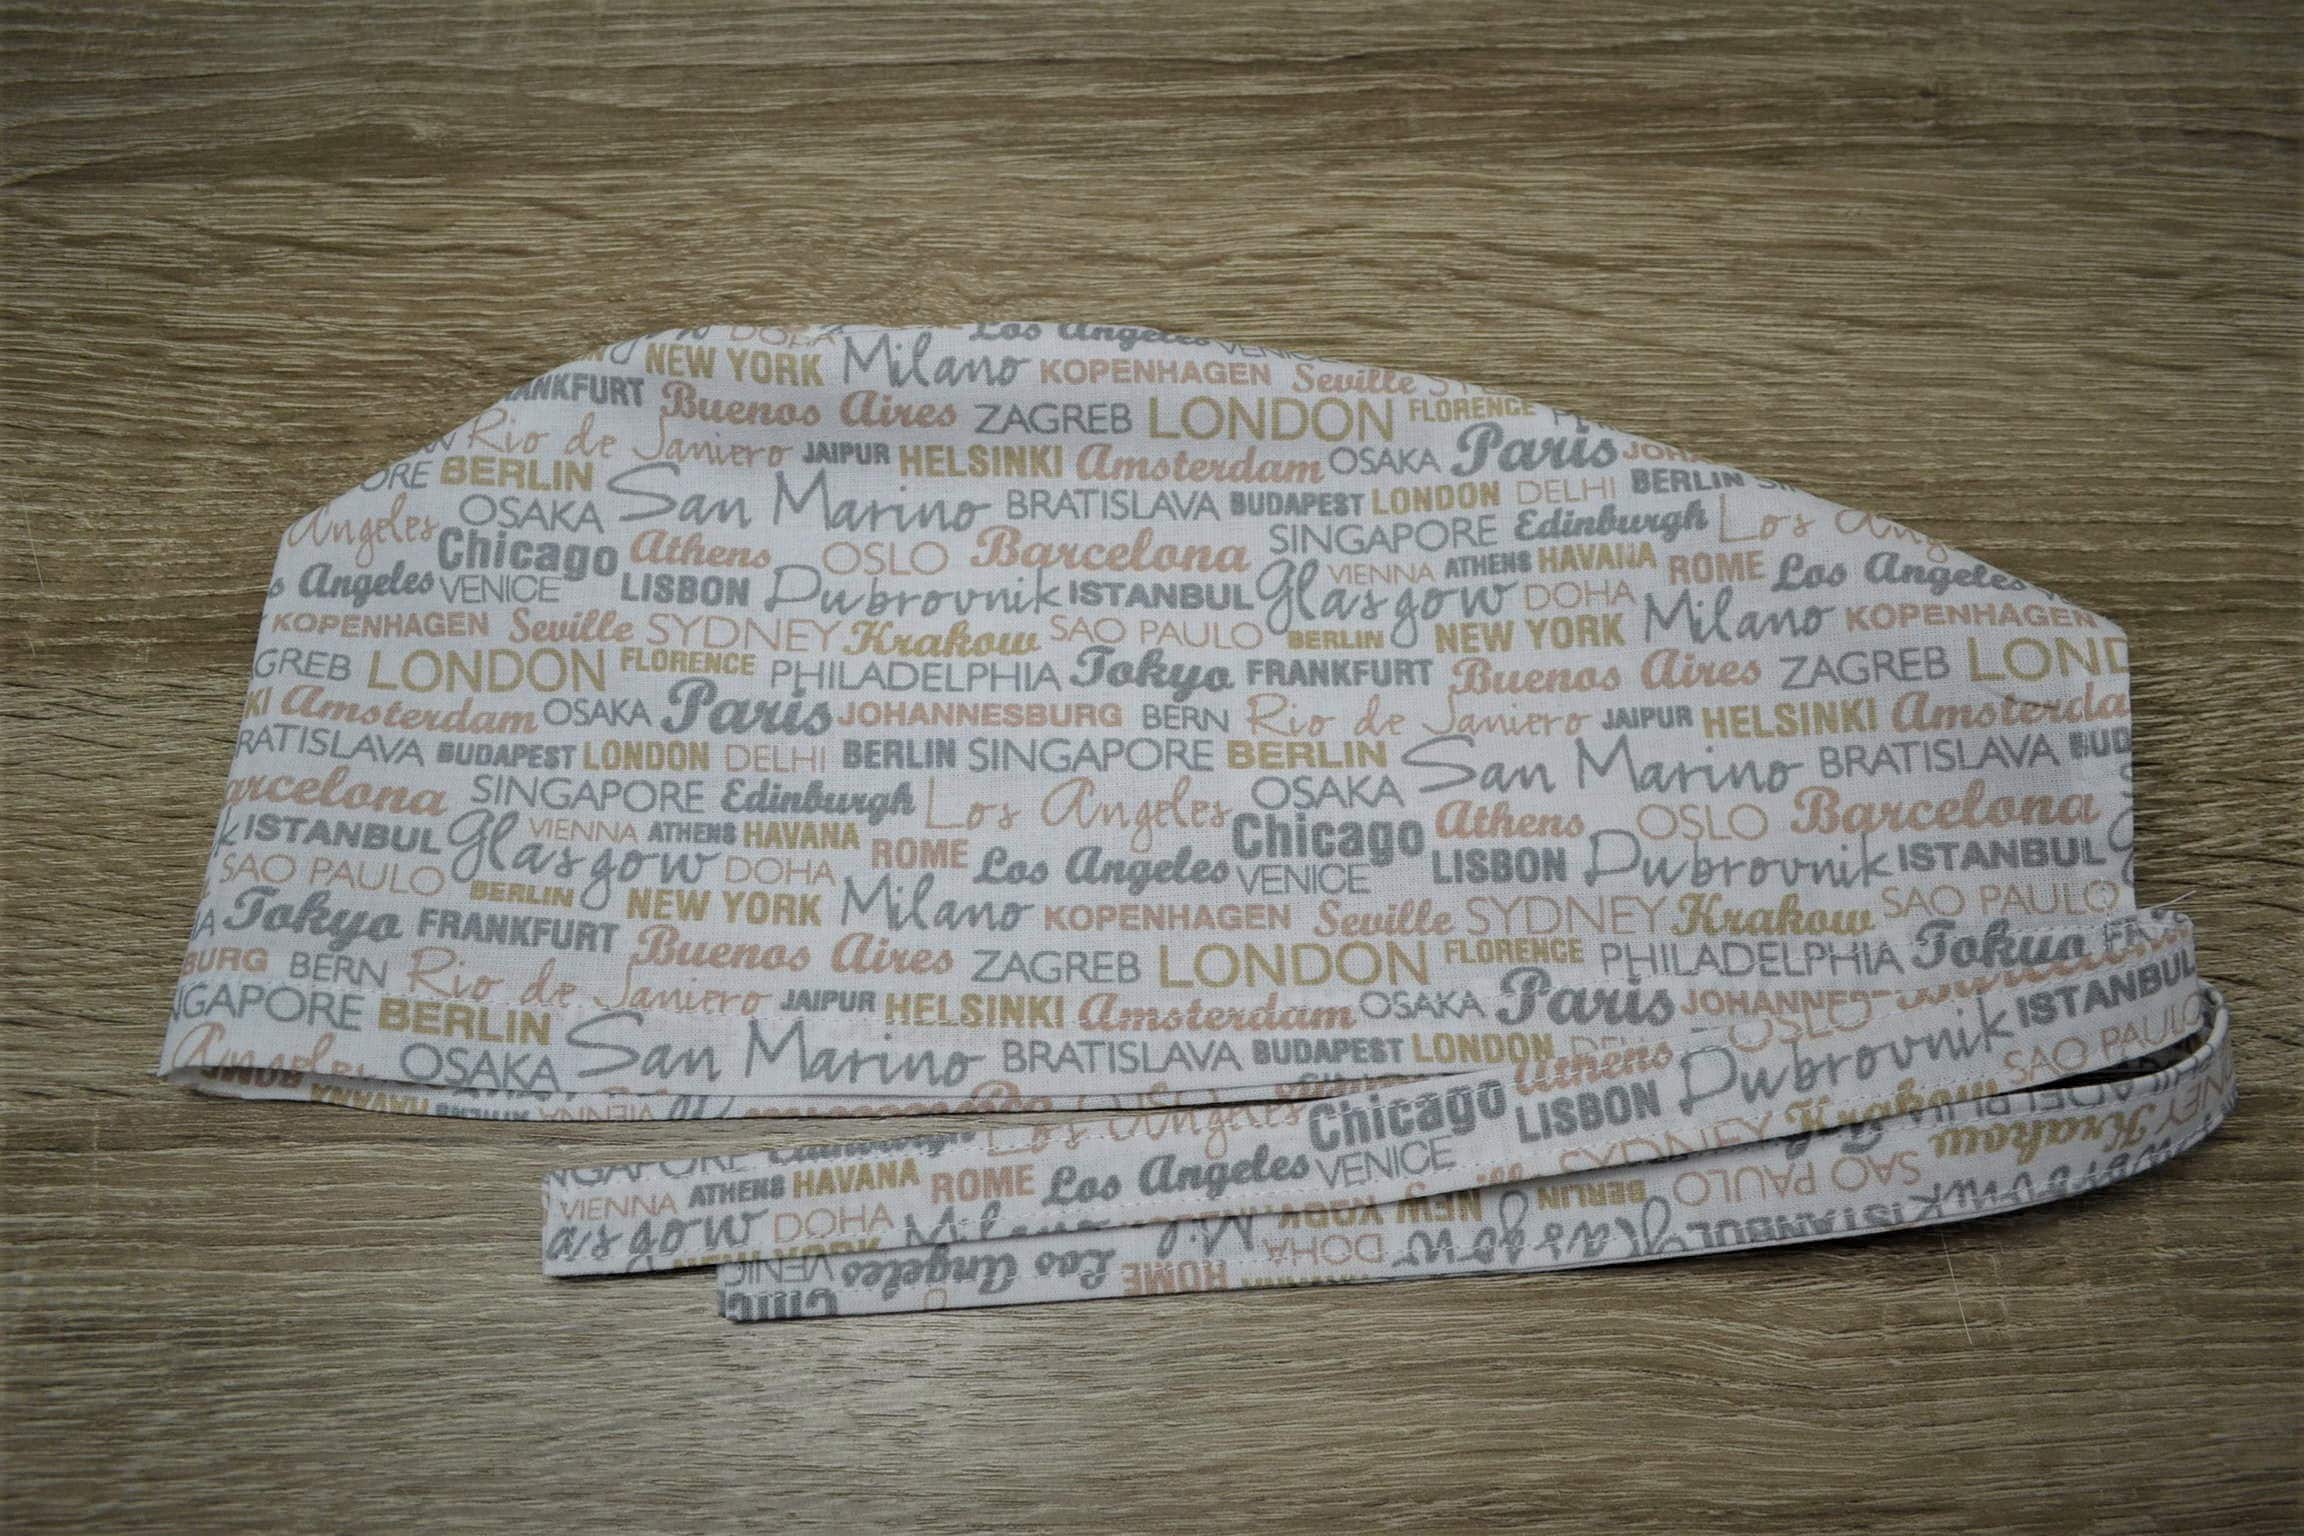 DOHA Los Angeles VENICE
NEW YORK Milano KOPENHAGEN Seville
ANKFURT Buenos Aires ZAGREB LONDON FLORENCE
Rio de Janiero JAIPUR HELSINKI Amsterdam OSAKA Paris JOH
ORE BERLIN San Marino BRATISLAVA BUDAPEST LONDON DELHI BERLIN
Angeles OSAKA SINGAPORE Edinburgh Los Ang
Chicago Athens OSLO Barcelona VIENNA ATHENS HAVANA ROME Los Angeles
s Angeles VENICE LISBON Dubrovnik ISTANBUL Glasgow DOHA Milano KOPENHAGEN
KOPENHAGEN Seville SYDNEY Krakow SAO PAULO BERLIN NEW YORK
GREB LONDON FLORENCE PHILADELPHIA Tokyo FRANKFURT Buenos Aires ZAGREB LOND
KI Amsterdam OSAKA Paris JOHANNESBURG BERN Rio de Janiero JAIPUR HELSINKI Amsterda
RATISLAVA BUDAPEST LONDON DELHI BERLIN SINGAPORE BERLIN San Marino BRATISLAVA BUD
arcelona SINGAPORE Edinburgh Los Angeles OSAKA Athens OSLO Barcelona
k ISTANBUL Glasgow VIENNA ATHENS HAVANA ROME Los Angeles Chicago VENICE LISBON Dubrovnik ISTANBUL
SAO PAULO BERLIN DOHA NEW YORK Milano KOPENHAGEN Seville SYDNEY Krakow SAO PAULO
A Tokyo FRANKFURT Buenos Aires ZAGREB LONDON FLORENCE PHILADELPHIA Tokyo
BURG BERN Rio de Janiero JAIPUR HELSINKI Amsterdam OSAKA Paris JOHANNES
NGAPORE BERLIN San Marino BRATISLAVA BUDAPEST LONDON
Angeles OSAKA
HAVANA VIENNA
OSLO Dubrovnik ISTANBUL
Los Angeles Chicago Athens LISBON SAO PAULO
NGAPORE Edinburgh
VIENNA ATHENS HAVANA ROME Los Angeles VENICE SYDNEY
asgow DOHA Milano
Krakow
SAO PAULO
NEW YORK BERLIN
DOHA Glasgow ISTANBUL
VENIC Los Angeles ROME
CHIC